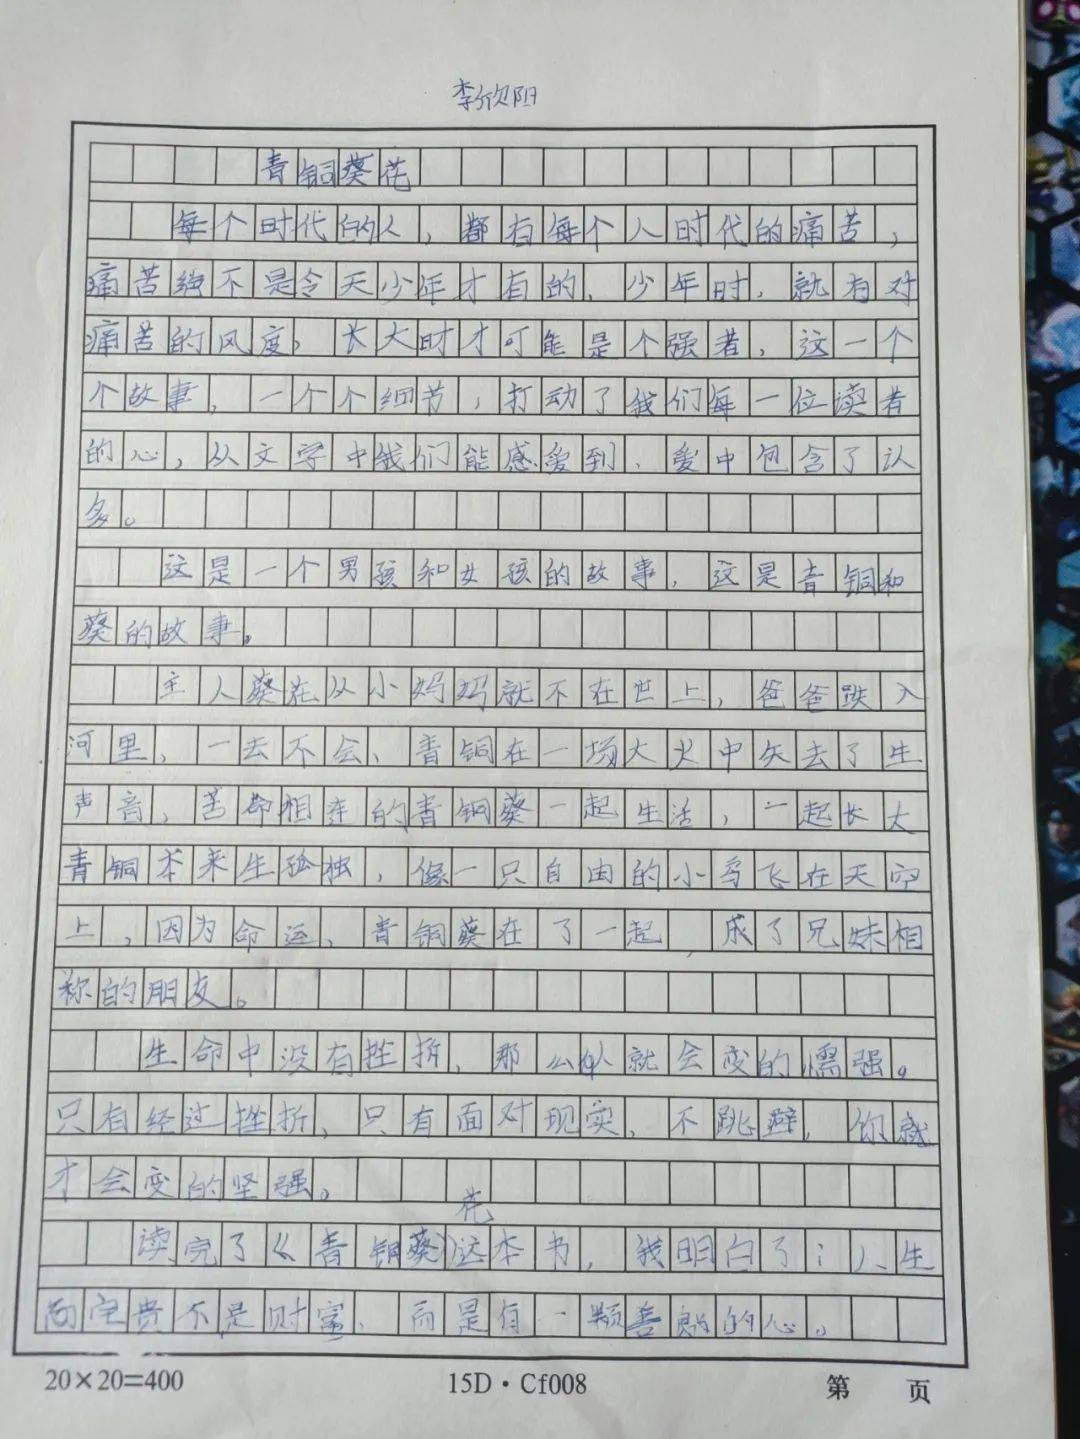 李欣阳
青铜葵花
每个时代的人，都有每个人时代的痛苦，
痛苦绝不是今天少年才有的，少年时，就有对
痛苦的风度，长大时才可能是个强者，这一个
个故事，一个个细节，打动了我们每一位读者
的心，从文字中我们能感爱到，爱中包含了认
多。
这是一个男孩和女孩的故事，这是青铜和
葵的故事。
主人葵花从小妈妈就不在世上，爸爸跌入
河里，一去不会，青铜在一场大火中失去了生
声音，苦都相连的青铜葵一起生活，一起长大
青铜本来生孤独，像一只自由的小鸟飞在天空
上，因为命运，青铜葵在了一起，成了兄妹相
称的朋友。
生命中没有挫折，那么你就会变的懦强。
只有经过挫折，只有面对现实，不跳避，你就
才会变的坚强。
读完了《青铜葵花》这本书，我明白了；人生
的宝贵不是财富，而是有一颗善良的心。
20×20=400 15D·Cf008 第 页